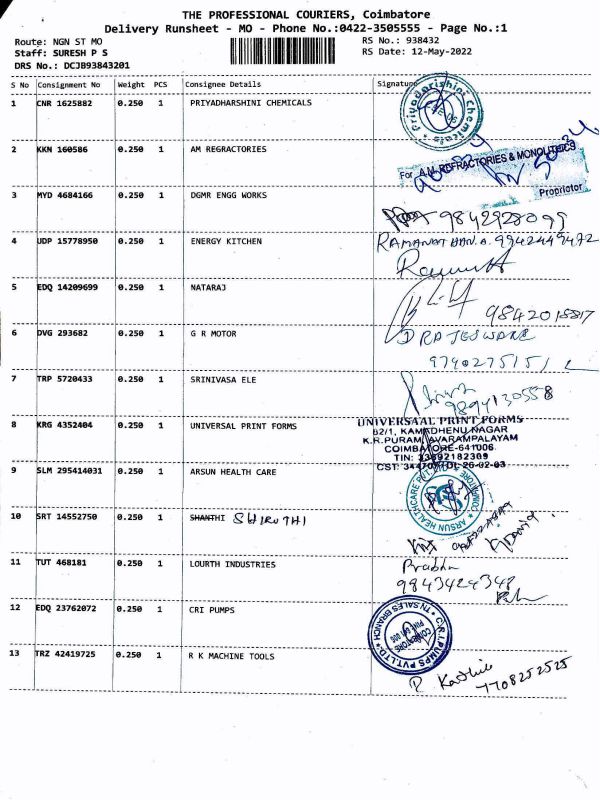 THE PROFESSIONAL COURIERS, Coimbatore
Delivery Runsheet - MO - Phone No.:0422-3505555 - Page No.:1
Route: NGN ST MO
RS No.: 938432
Staff: SURESH P S
RS Date: 12-May-2022
DRS No.: DCJB93843201
S No Consignment No Weight PCS Consignee Details Signature
1 CNR 1625882 0.250 1 PRIYADHARSHINI CHEMICALS
Priyadarishini Chemicals
2 KKN 160586 0.250 1 AM REGRACTORIES
For A.M. REFRACTORIES & MONOLITHICS
Proprietor
3 MYD 4684166 0.250 1 DGMR ENGG WORKS
9842928099
4 UDP 15778950 0.250 1 ENERGY KITCHEN
RAMANATHAN.A. 9942449472
5 EDQ 14209699 0.250 1 NATARAJ
9842018817
6 DVG 293682 0.250 1 G R MOTOR
D RAJESWARI
9740275151
7 TRP 5720433 0.250 1 SRINIVASA ELE
9894130558
8 KRG 4352404 0.250 1 UNIVERSAL PRINT FORMS
UNIVERSAAL PRINT FORMS
82/1, KAMADHENU NAGAR
K.R.PURAM, AVARAMPALAYAM
COIMBATORE-641006
TIN: 33692182309
CST: 344707 DL 26-02-03
9 SLM 295414031 0.250 1 ARSUN HEALTH CARE
ARSUN HEALTHCARE PVT. LTD. COIMBATORE
10 SRT 14552750 0.250 1 SHANTHI SHRUTHI
11 TUT 468181 0.250 1 LOURTH INDUSTRIES
Prabhu
9843424348
12 EDQ 23762072 0.250 1 CRI PUMPS
C.R.I. PUMPS PVT.LTD.
TN SALES BRANCH
13 TRZ 42419725 0.250 1 R K MACHINE TOOLS
R Kathir
7708252525